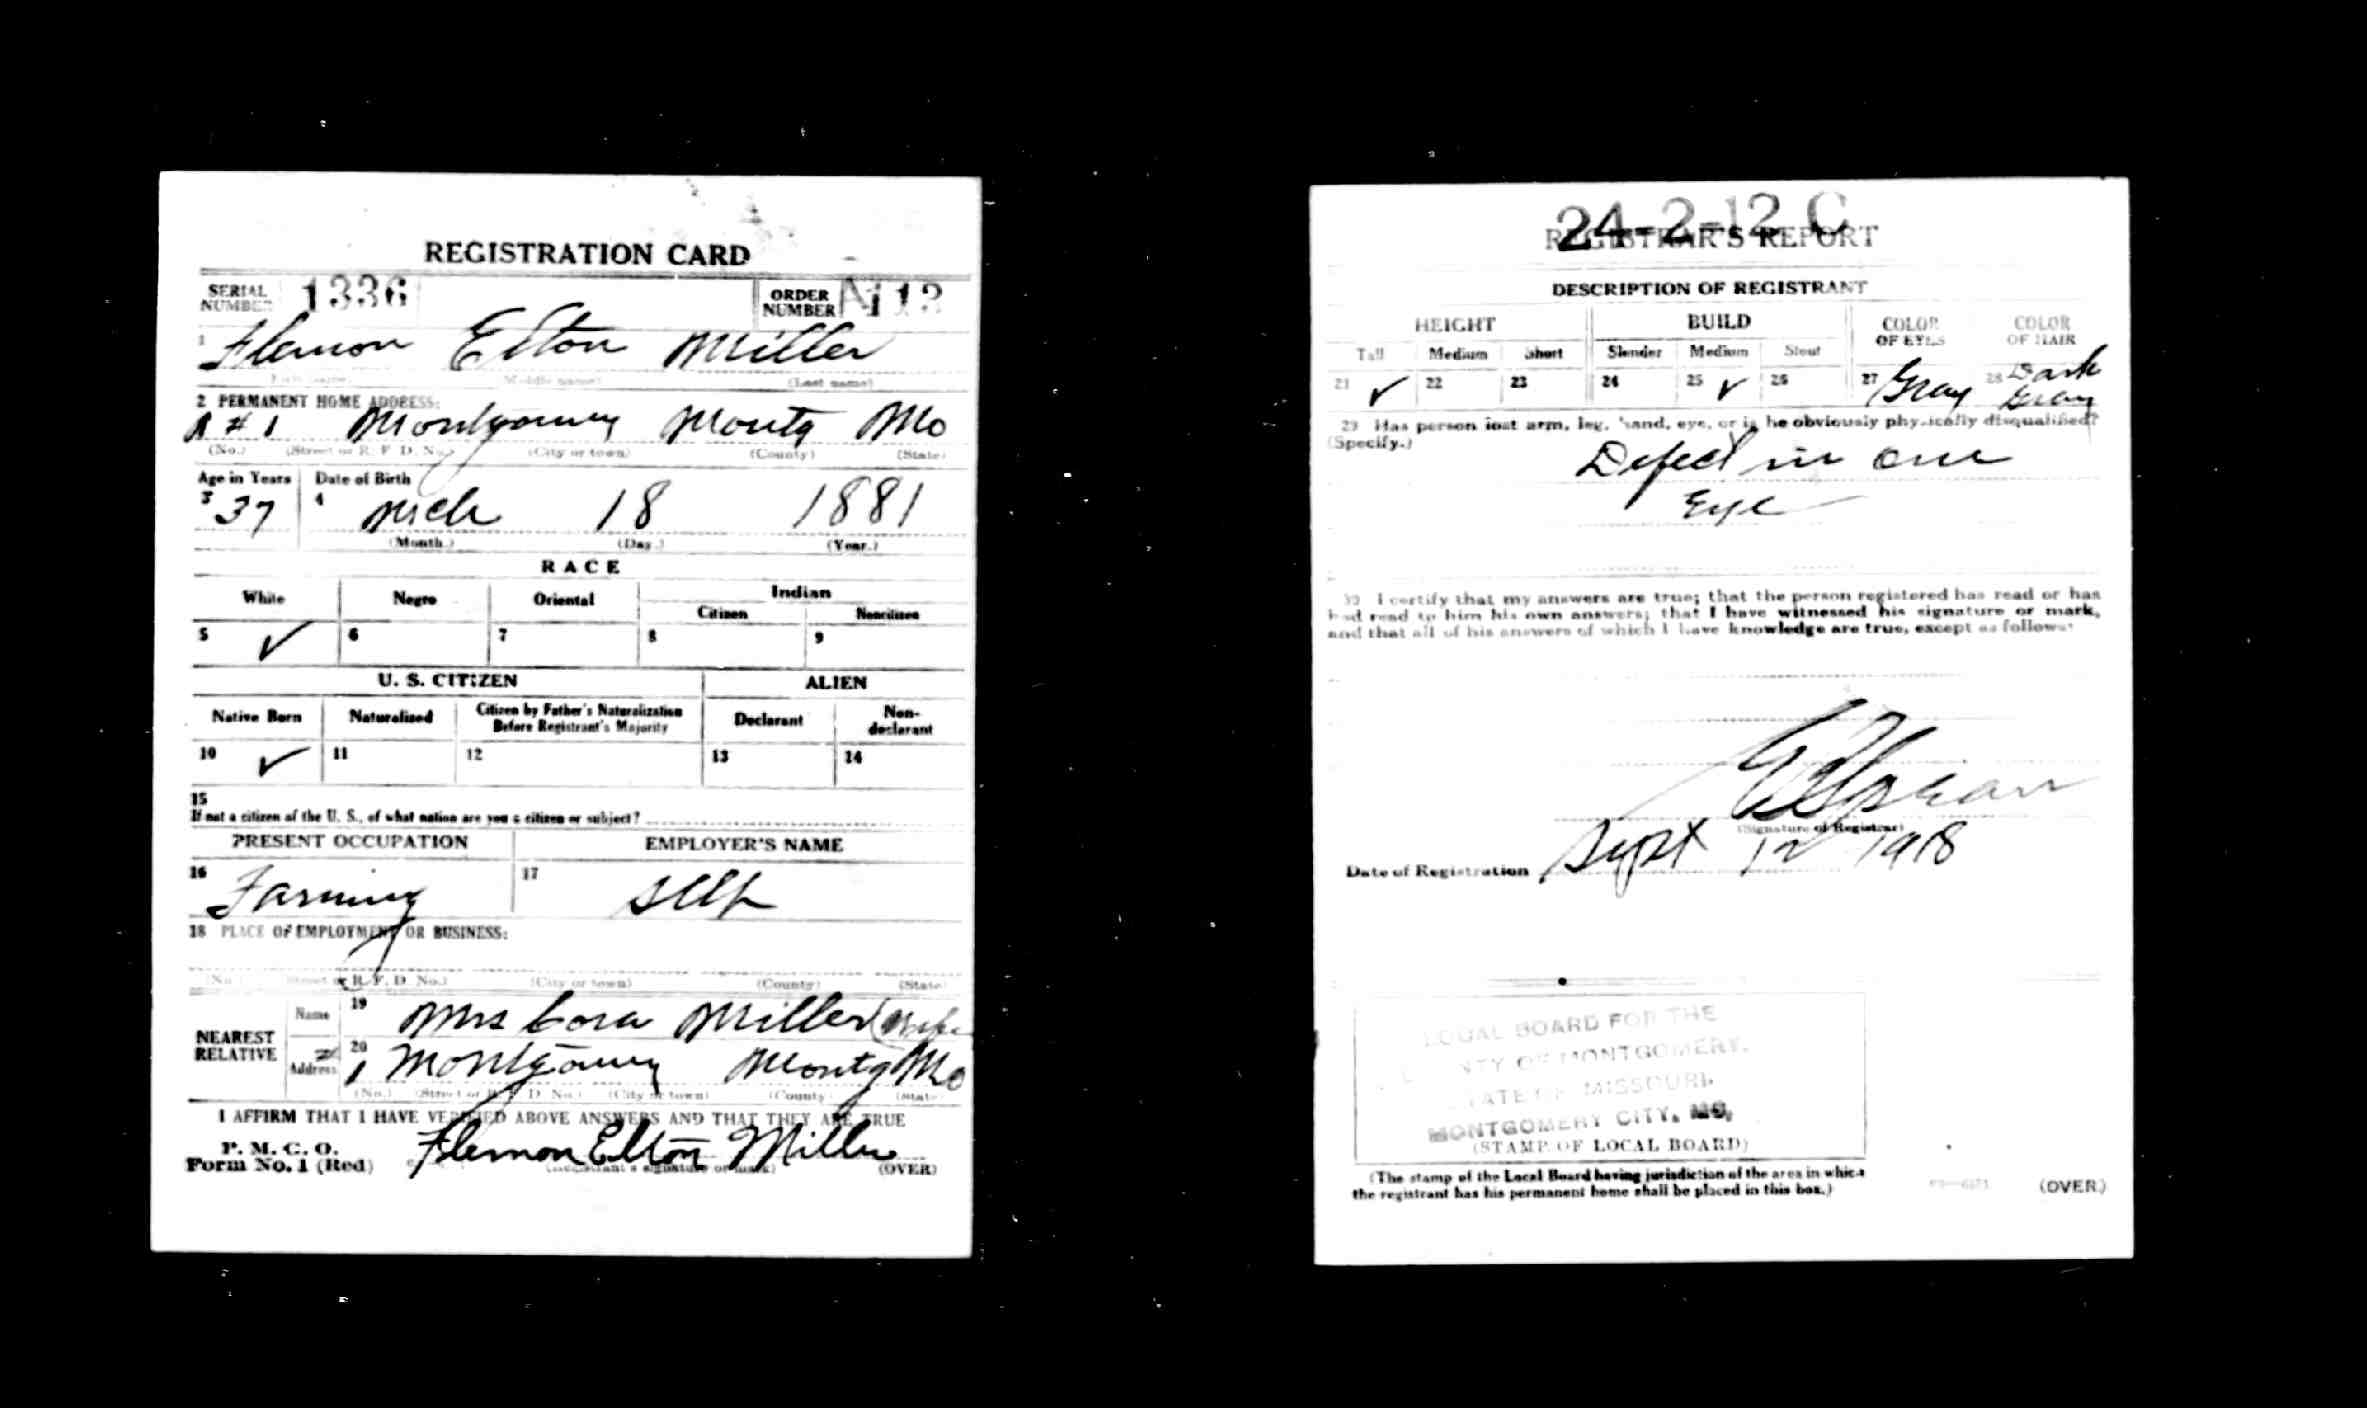 REGISTRATION CARD
SERIAL NUMBER 1336 ORDER NUMBER
1 Flemon Elton Miller
(First name) (Middle name) (Last name)
2 PERMANENT HOME ADDRESS:
R # 1 Montgomery Montg Mo
(No.) (Street or R. F. D. No.) (City or town) (County) (State)
Age in Years Date of Birth
3 37 4 Mch 18 1881
(Month.) (Day.) (Year.)
RACE
White Negro Oriental Indian
Citizen Noncitizen
5 ✓ 6 7 8 9
U. S. CITIZEN ALIEN
Native Born Naturalized Citizen by Father's Naturalization Before Registrant's Majority Declarant Non-declarant
10 ✓ 11 12 13 14
15
If not a citizen of the U. S., of what nation are you a citizen or subject?
PRESENT OCCUPATION EMPLOYER'S NAME
16 Farming 17 Self
18 PLACE OF EMPLOYMENT OR BUSINESS:
(No.) (Street or R. F. D. No.) (City or town) (County) (State)
NEAREST RELATIVE
Name 19 Mrs Cora Miller (Wife
Address 20 # 1 Montgomery Montg Mo
(No.) (Street or R. F. D. No.) (City or town) (County) (State)
I AFFIRM THAT I HAVE VERIFIED ABOVE ANSWERS AND THAT THEY ARE TRUE
P. M. C. O.
Form No. 1 (Red) Flemon Elton Miller
(Registrant's signature or mark) (OVER)
24-2-12 C
REGISTRAR'S REPORT
DESCRIPTION OF REGISTRANT
HEIGHT BUILD COLOR OF EYES COLOR OF HAIR
Tall Medium Short Slender Medium Stout
21 ✓ 22 23 24 25 ✓ 26 27 Gray 28 Dark Gray
29 Has person lost arm, leg, hand, eye, or is he obviously physically disqualified?
(Specify.)
Defect in one
Eye
30 I certify that my answers are true; that the person registered has read or has
had read to him his own answers; that I have witnessed his signature or mark,
and that all of his answers of which I have knowledge are true, except as follows:
(Signature of Registrar)
Date of Registration Sept 12 1918
LOCAL BOARD FOR THE
COUNTY OF MONTGOMERY,
STATE OF MISSOURI.
MONTGOMERY CITY, MO,
(STAMP OF LOCAL BOARD)
(The stamp of the Local Board having jurisdiction of the area in which
the registrant has his permanent home shall be placed in this box.)
(OVER)